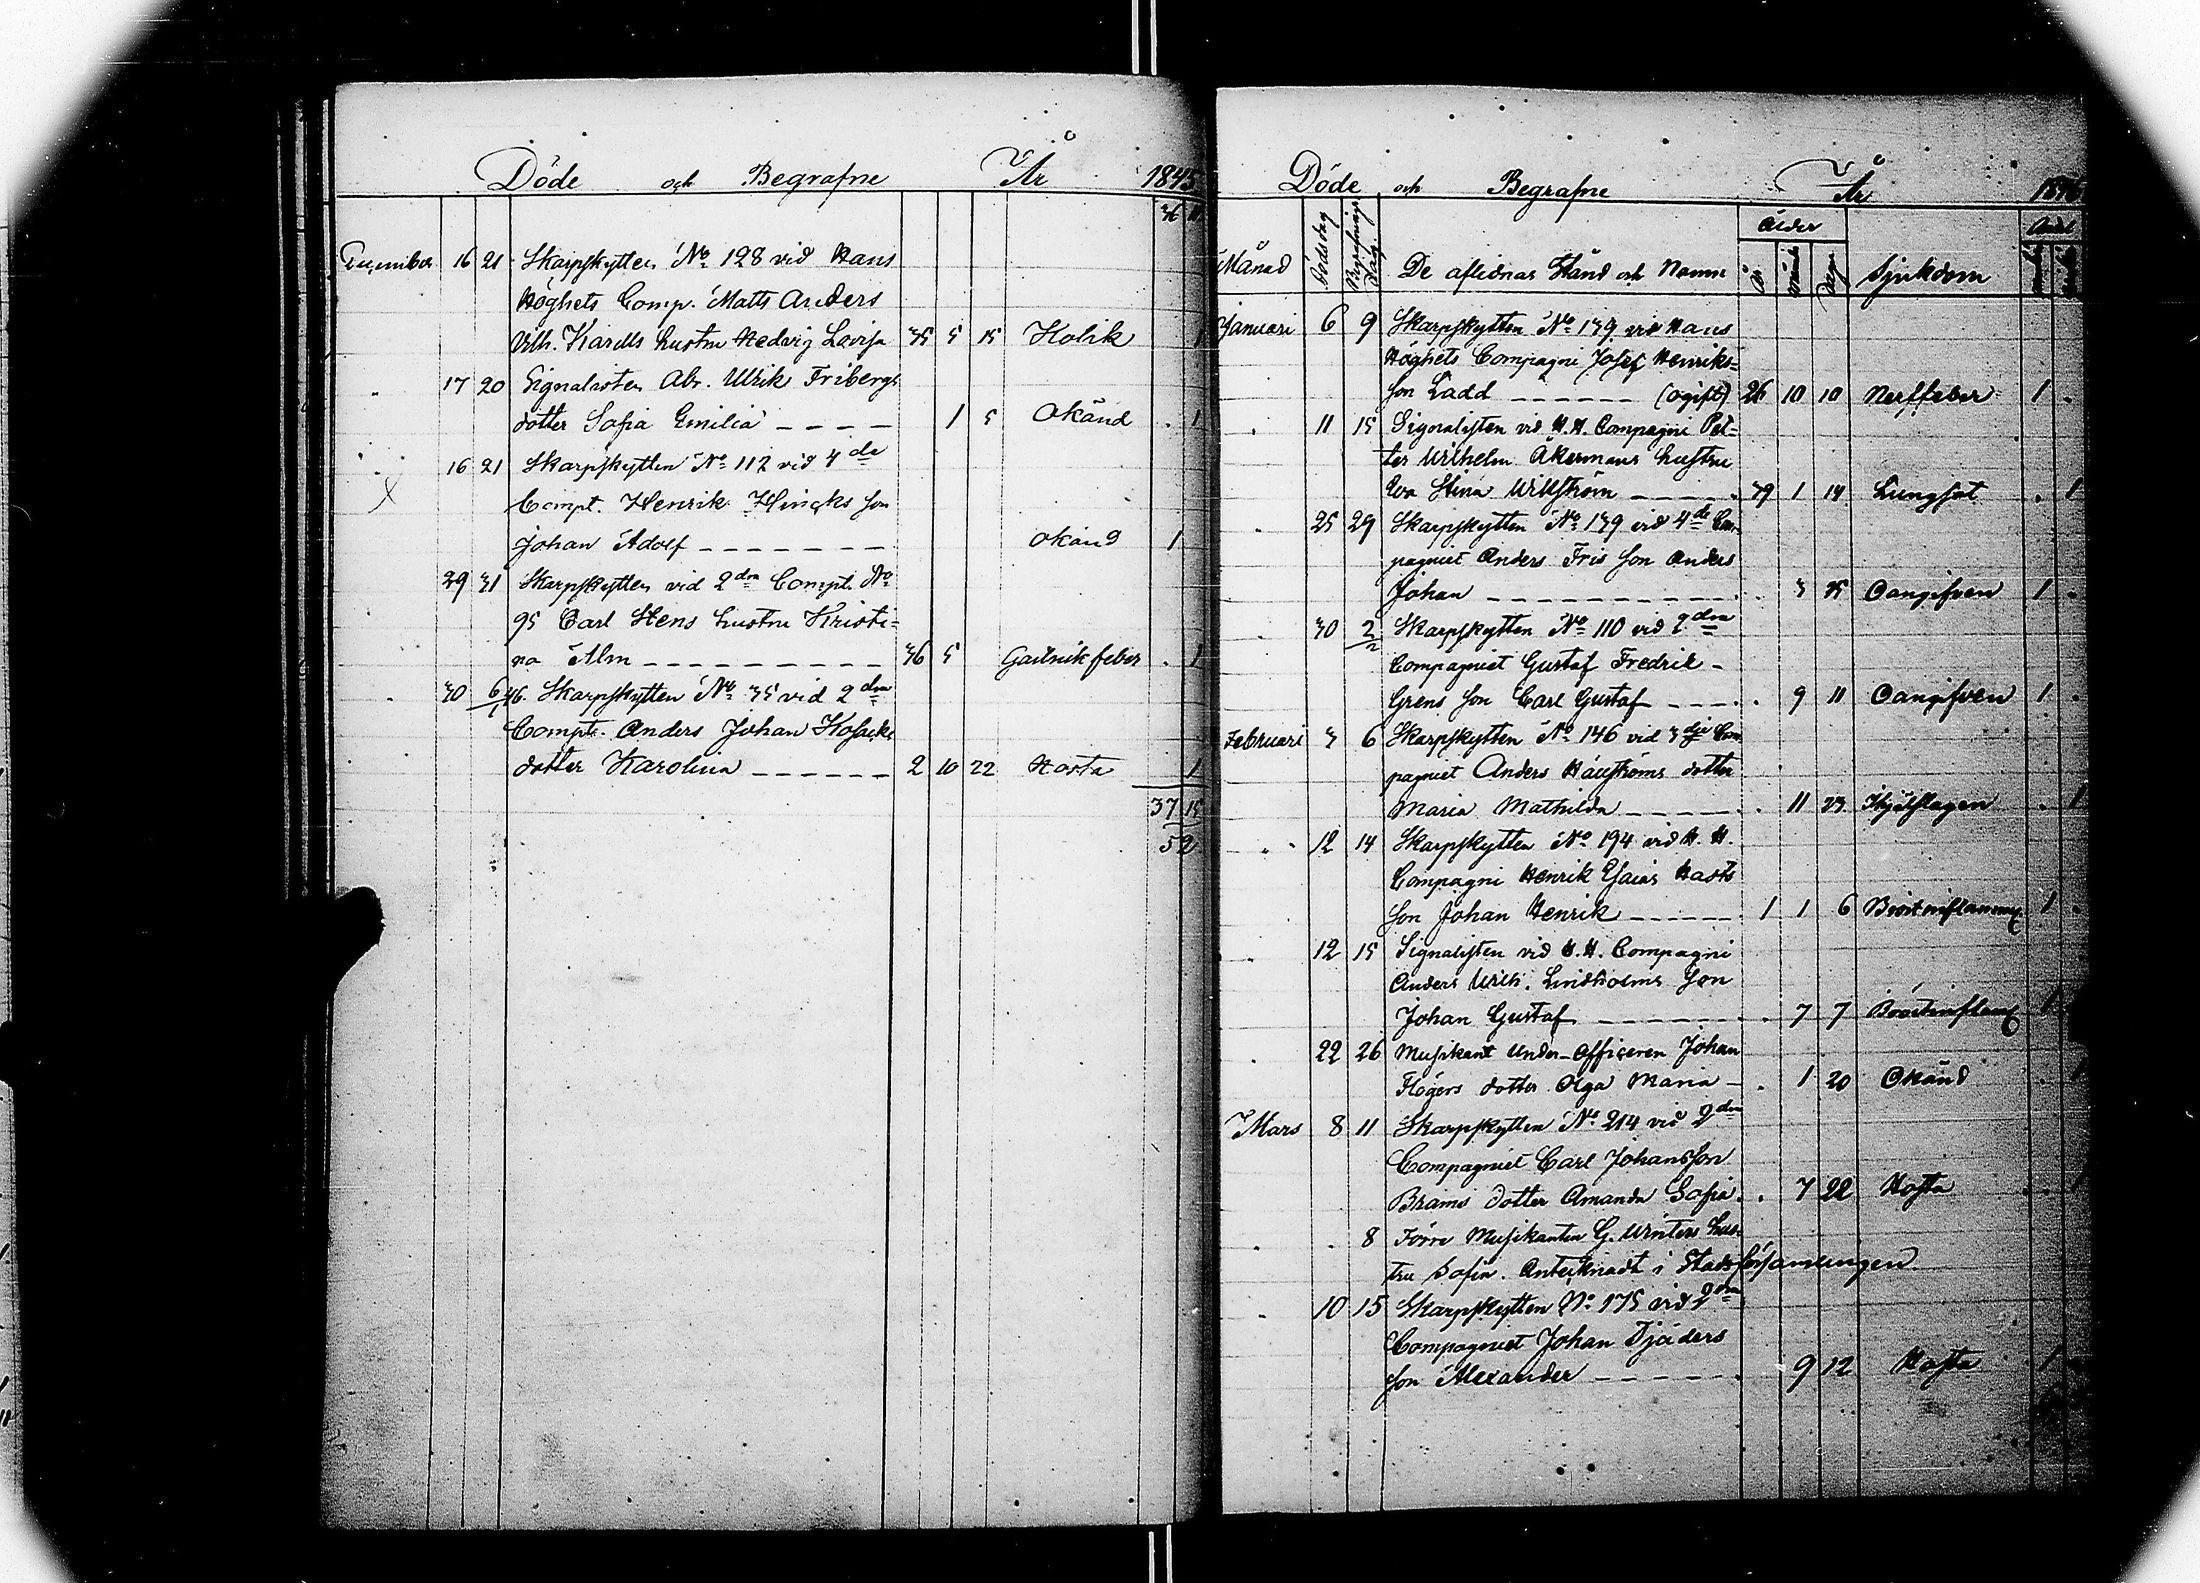 Döde och Begrafne År 1845
36 11
December 16 21 Skarpskytten No 128 vid Hans
Höghets Comp. Matts Anders
Vilh. Karells hustru Hedvig Lovisa 35 5 15 Kolik 1
" 17 20 Signalisten Abr. Ulrik Fribergs
dotter Sofia Emilia - - - - 1 5 Okänd . 1
" 16 21 Skarpskytten No 112 vid 4de
X Compt. Henrik Hincks son
Johan Adolf - - - - - - - Okänd 1
29 31 Skarpskytten vid 2dra Compt. No
95 Carl Stens hustru Kristi=
na Alm - - - - - - - - - 36 5 Gallrikfeber . 1
" 30 6/1 46. Skarpskytten No 35 vid 2dra
Compt. Anders Johan
dotter Karolina - - - - - - 2 10 22 Hosta 1
37 15
52
Döde och Begrafne År 1846
Ålder Antal
Månad Dödsdag Begrafnings Dag De aflidnas Stånd och Namn År Månad Dagar Sjukdom
Januari 6 9 Skarpskytten No 139 vid Hans
Höghets Compagni Josef Henriks=
son Ladd - - - - - - (ogift) 26 10 10 Nerffeber 1 .
" 11 15 Signalisten vid H. H. Compagni Pet=
ter Wilhelm Åkermans hustru
Eva Stina Willström - - - - 39 1 14 Lungsot . 1
" 25 29 Skarpskytten No 139 vid 4de Com-
pagniet Anders Fris son Anders
Johan - - - - - - - - - - - . 3 25 Oangifven 1 .
" 30 2/2 Skarpskytten No 110 vid 2dra
Compagniet Gustaf Fredrik -
Grens son Carl Gustaf - - - - . 9 11 Oangifven 1 .
Februari 3 6 Skarpskytten No 146 vid 3dje Com
pagniet Anders Hägströms dotter
Maria Mathilda - - - - - . 11 23 Skjälslagen . 1
" 12 14 Skarpskytten No 194 vid H. H.
Compagni Henrik Esaias Hasts
son Johan Henrik - - - - - 1 1 6 Bröstinflamm. 1 .
" 12 15 Signalisten vid H. H. Compagni
Anders Ulrik. Lindholms son
Johan Gustaf - - - - - - - . 7 7 Bröstinflam 1
" 22 26 Musikant Under-Officeren Johan
Högers dotter Olga Maria - . 1 20 Okänd . 1
Mars 8 11 Skarpskytten No 214 vid 2dra
Compagniet Carl Johansson
Brams dotter Amanda Sofia. . 7 22 Hosta . 1
" . 8 Förre Musikanten G. Winters hus-
tru Sofia. Antecknadt i Stadsförsamlingen
" 10 15 Skarpskytten No 175 vid 2dra
Compagniet Johan Tjäders
son Alexander - - - - - - 9 12 Hosta 1 .